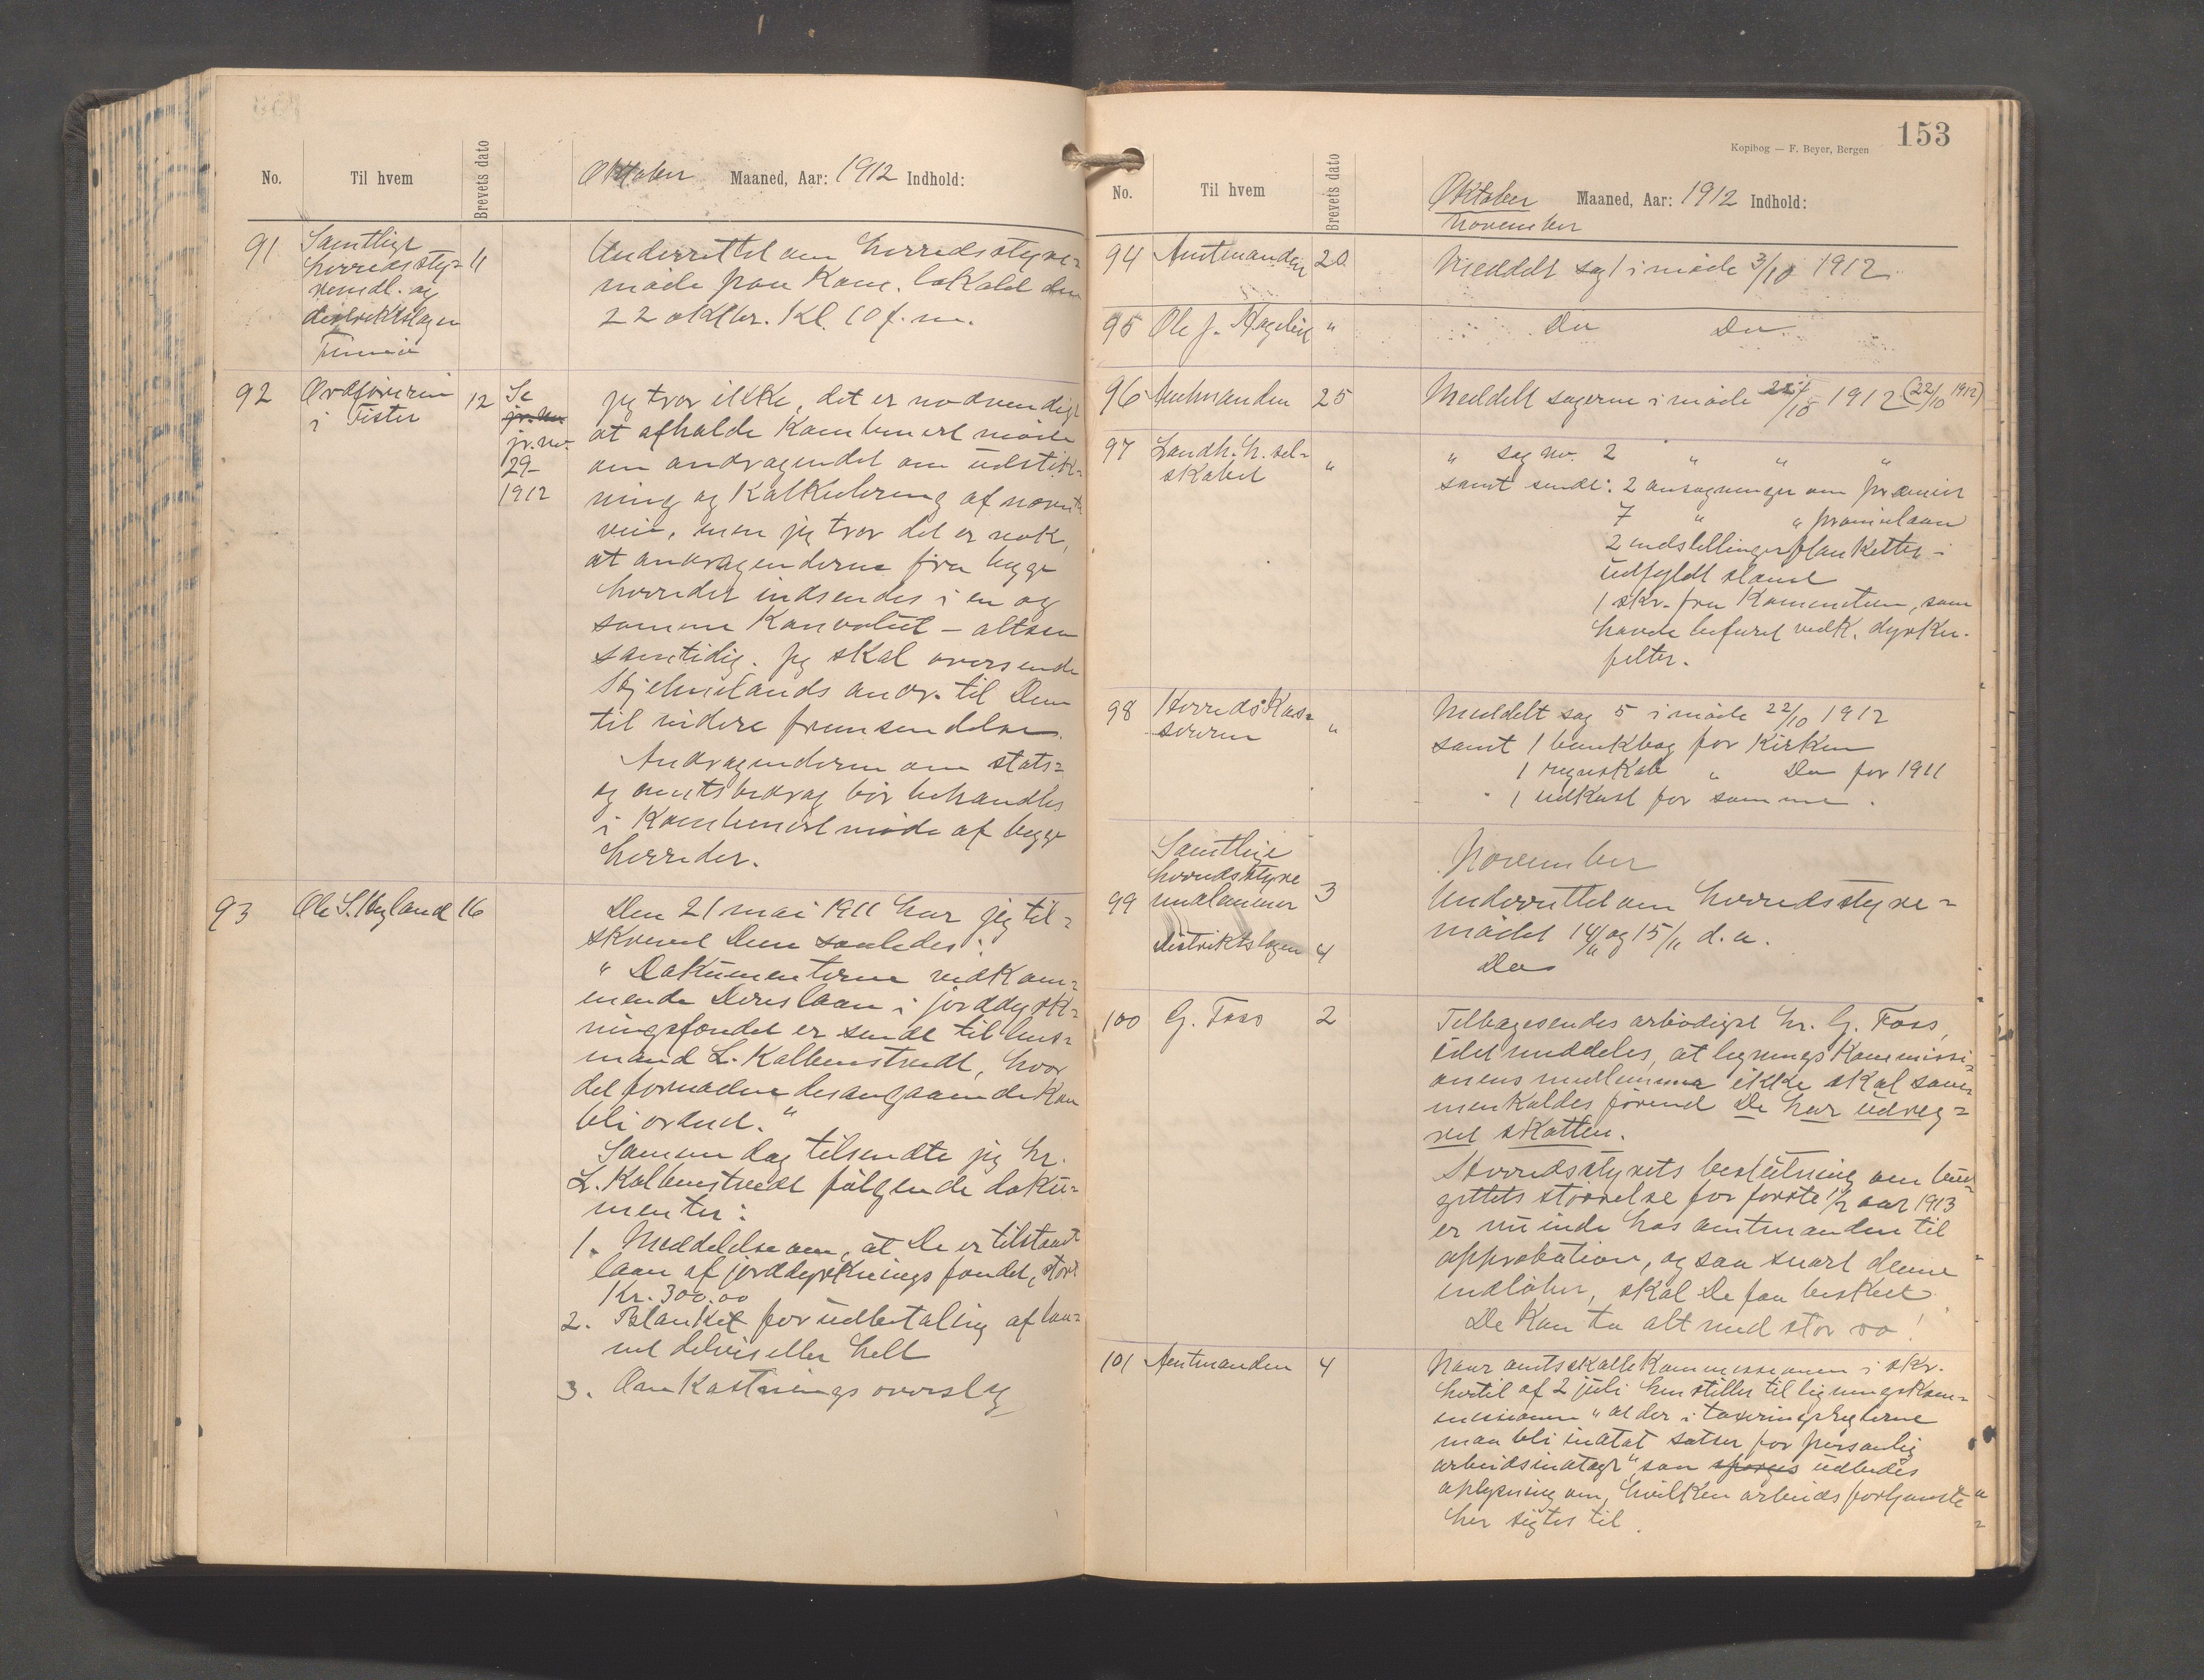 No.
Til hvem
Brevets dato
Oktober Maaned, Aar: 1912 Indhold:
91
Samtlige
herredssty=
remdl. og
distriktslægen
11
Underrettet om herredsstyre=
møde paa Kom. lokalet den
22 oktbr. Kl. 10 f.m.
92
Ordføreren
i Fister
12
Se
jr. no.
29-
1912
Jeg tror ikke, det er nødvendigt
at afholde Kombinert møde
om andragendet om udstik=
ning og Kalkulering af nævnte
vei, men jeg tror det er nok,
at andragenderne fra begge
herreder indsendes i en og
samme Konvolut – altsaa
samtidig. Jeg skal oversende
Hjelmelands andr. til Dem
til videre fremsendelse.
Andragenderne om stats=
og amtsbidrag bør behandles
i Kombinert møde af begge
herreder.
93
Ole S. Høyland
16
Den 21 mai 1911 har jeg til=
skrevet Dem saaledes:
" Dokumenterne vedkom=
mende Deres laan i jorddyrk=
ningsfondet er sendt til lens=
mand L. Kolbenstvedt, hvor
det fornødne desangaaende kan
bli ordnet. "
Samme dag tilsendte jeg hr.
L. Kolbenstvedt følgende doku=
menter:
1. Meddelelse om, at De er tilstaaet
laan af jorddyrkningsfondet, stort
Kr. 300.00
2. Blanket for udbetaling af laa=
net delvis eller helt
3. Omkostningsoverslag
153
Kopibog — F. Beyer, Bergen
No.
Til hvem
Brevets dato
Oktober Maaned, Aar: 1912 Indhold:
November
94 Amtmanden 20 Meddelt sag 1 i møde 3/10 1912
95 Ole J. " Do Do
96 Amtmanden 25 Meddelt sagerne i møde 1912 (22/10 1912)
97 Landh. h. sel=
skabet
"
" sag no. 2 " " "
samt sendt: 2 ansøgninger om præmier
7 " " præmielaan
2 indstillingsblanketter i
udfyldt stand
1 skr. fra Komiteen, som
havde befaret vedk. dyrkn.
felter.
98 Herredskas=
sereren
"
Meddelt sag 5 i møde 22/10 1912
samt 1 bankbog for Kirken
1 regnskab " Do for 1911
1 udkast for samme.
November
99
Samtlige
herredsstyre
medlemmer 3
Distriktslægen 4
Underrettet om herredsstyre=
mødet 14/11 og 15/11 d. a.
Do
100 G. Foss 2
Tilbagesendes ærbødigst hr. G. Foss,
idet meddeles, at ligningskommissi=
onens medlemmer ikke skal sam=
menkaldes førend De har udreg=
net skatten.
Herredsstyrets beslutning om bud=
gettets størrelse for første 1/2 aar 1913
er nu inde hos amtmanden til
approbation, og saa snart denne
indløber, skal De faa besked.
De Kan ta alt med stor ro!
101 Amtmanden 4
Naar amtsskattekommissionen i skr.
hertil af 2 juli henstiller til ligningskom=
missionen "at der i taxeringsreglerne
maa bli indtat satser for personlig
arbeidsindtægt", saa spørges udbedes
oplysning om, hvilken arbeidsfortjeneste
her sigtes til.